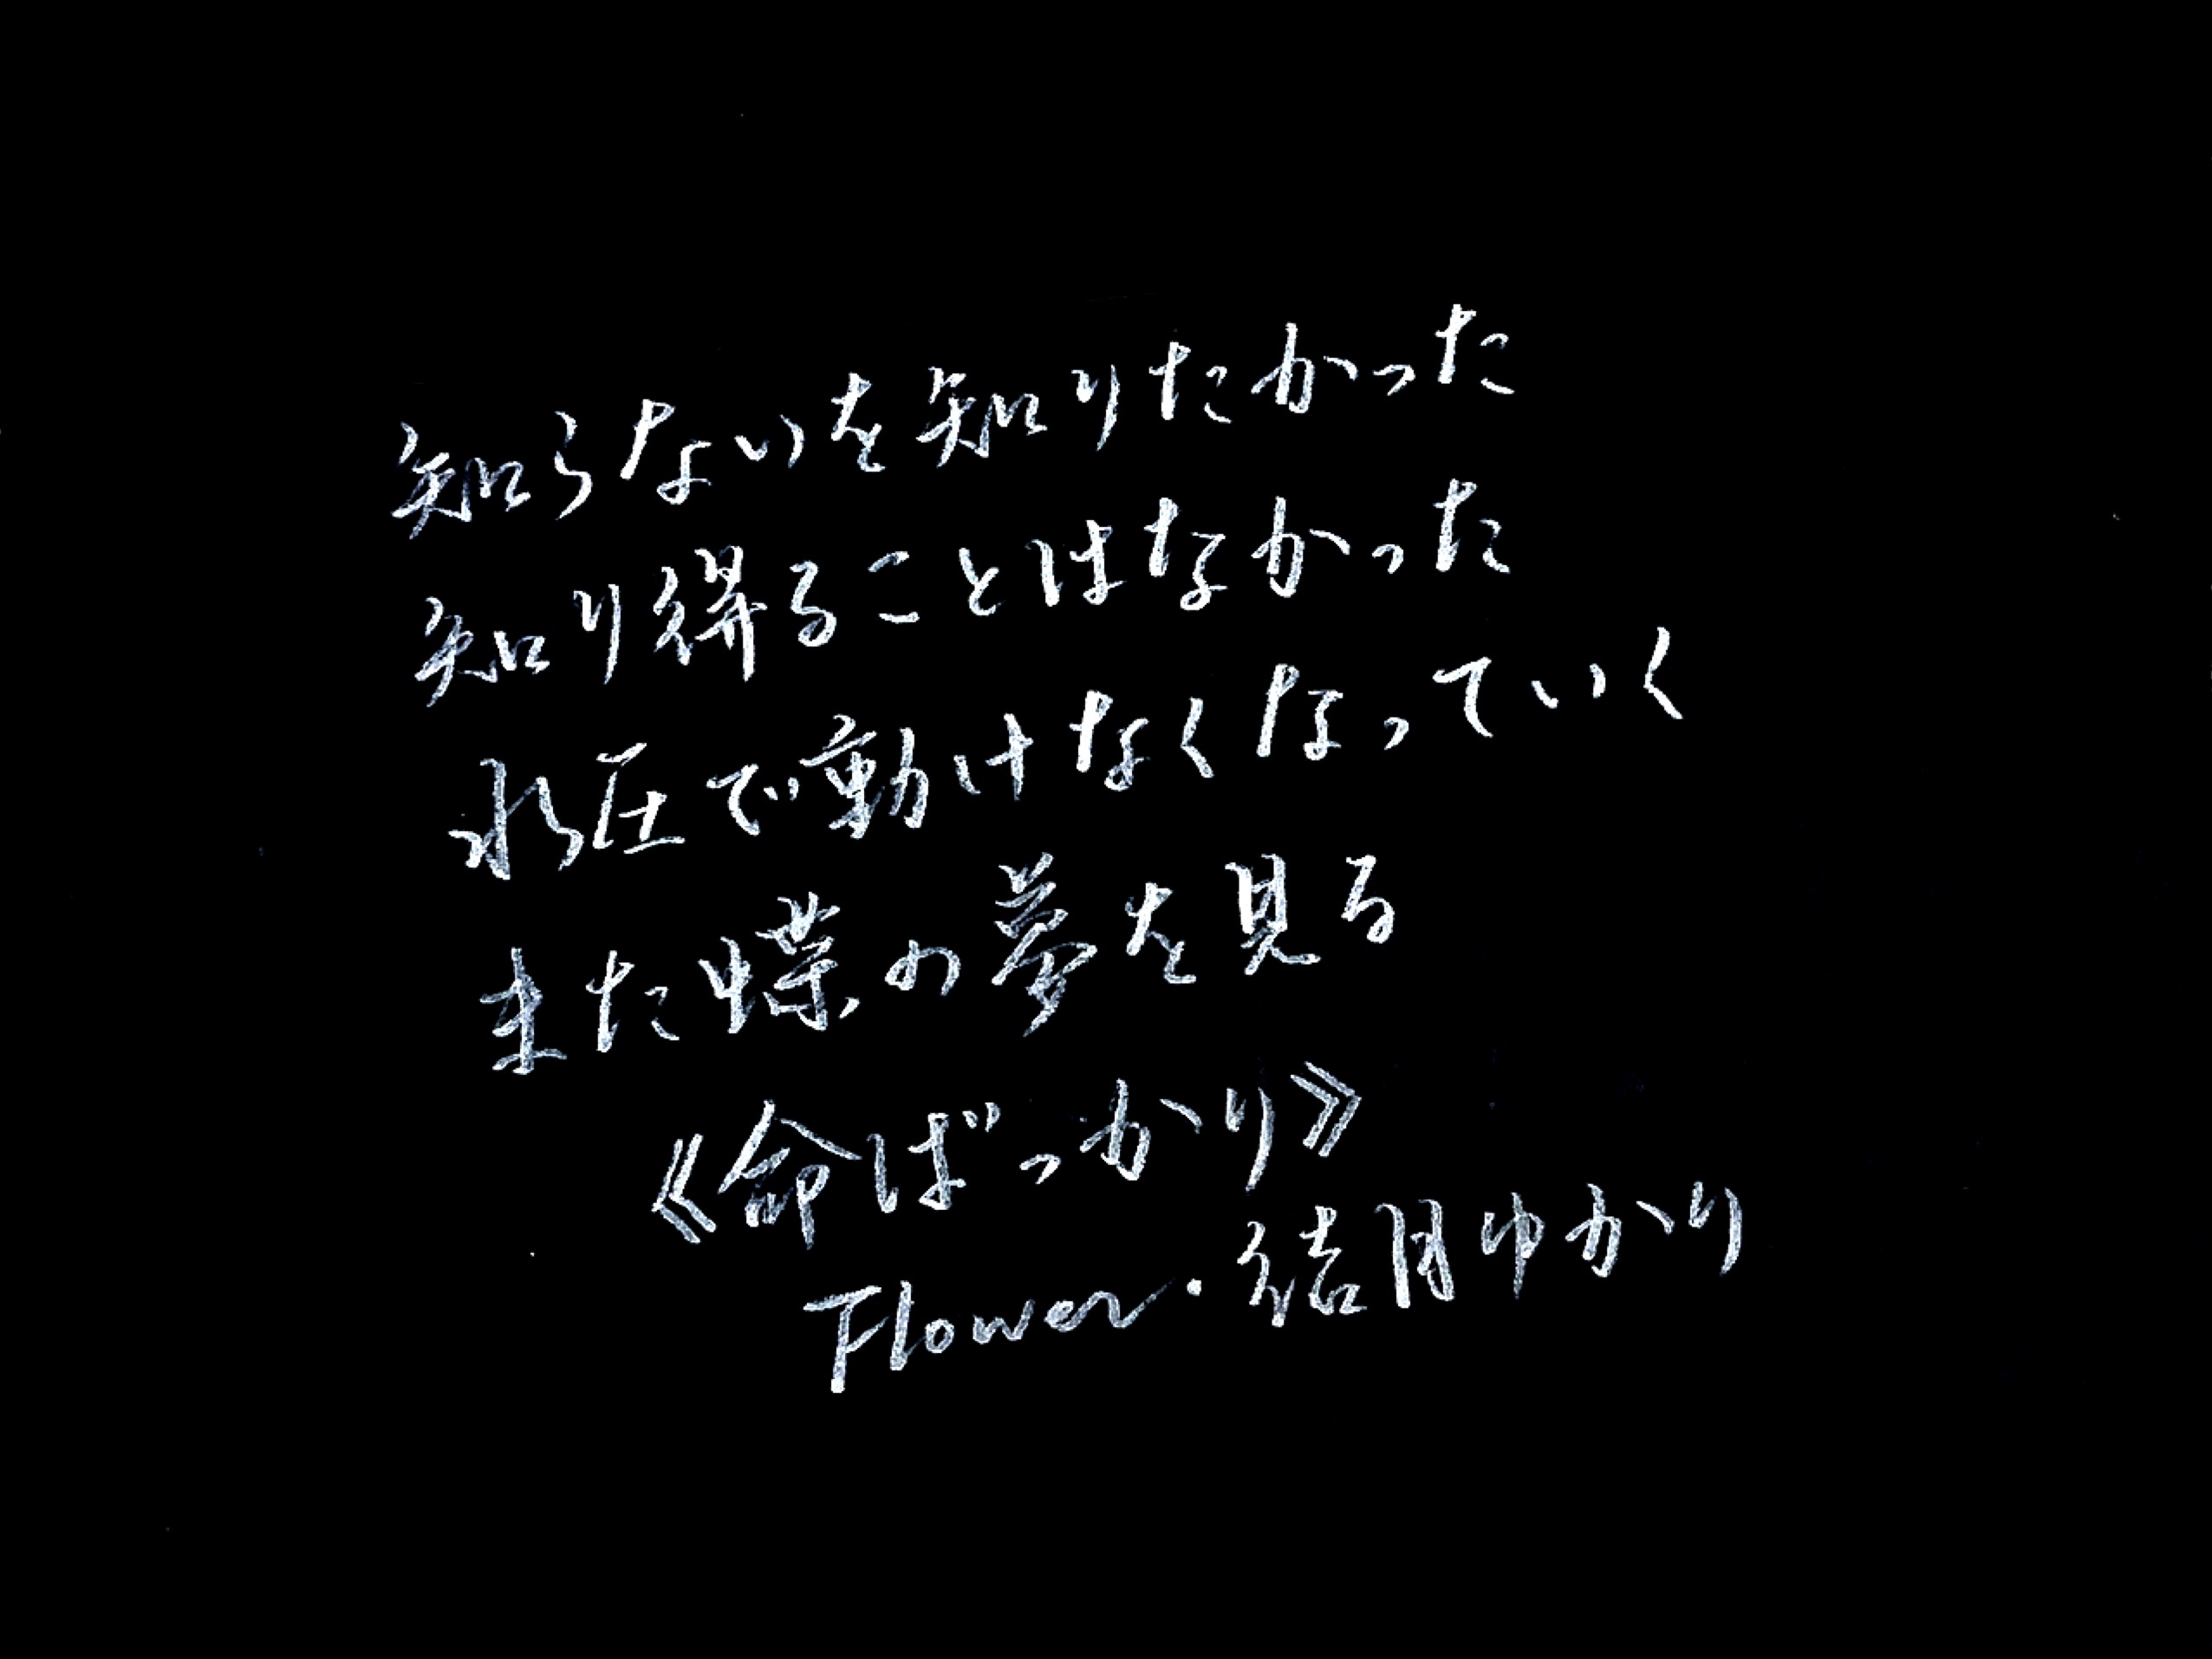 知らないを知りたかった
知り得ることはなかった
水圧で動けなくなっていく
また蝶の夢を見る
《命ばっかり》
Flower・结月ゆかり